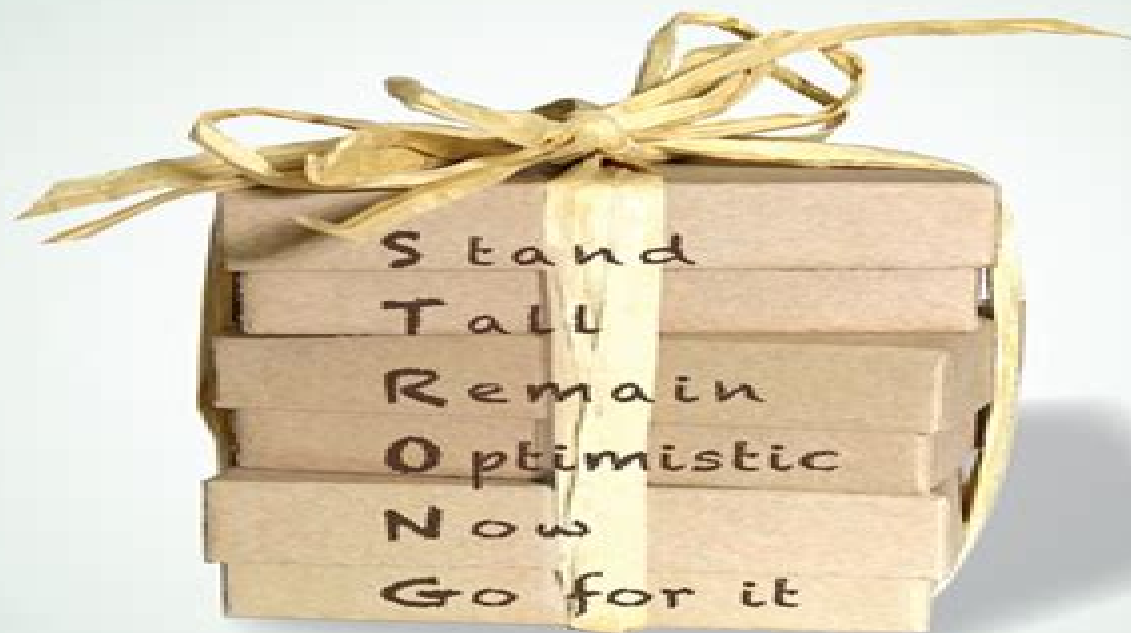 Stand
Tall
Remain
Optimistic
Now
Go for it